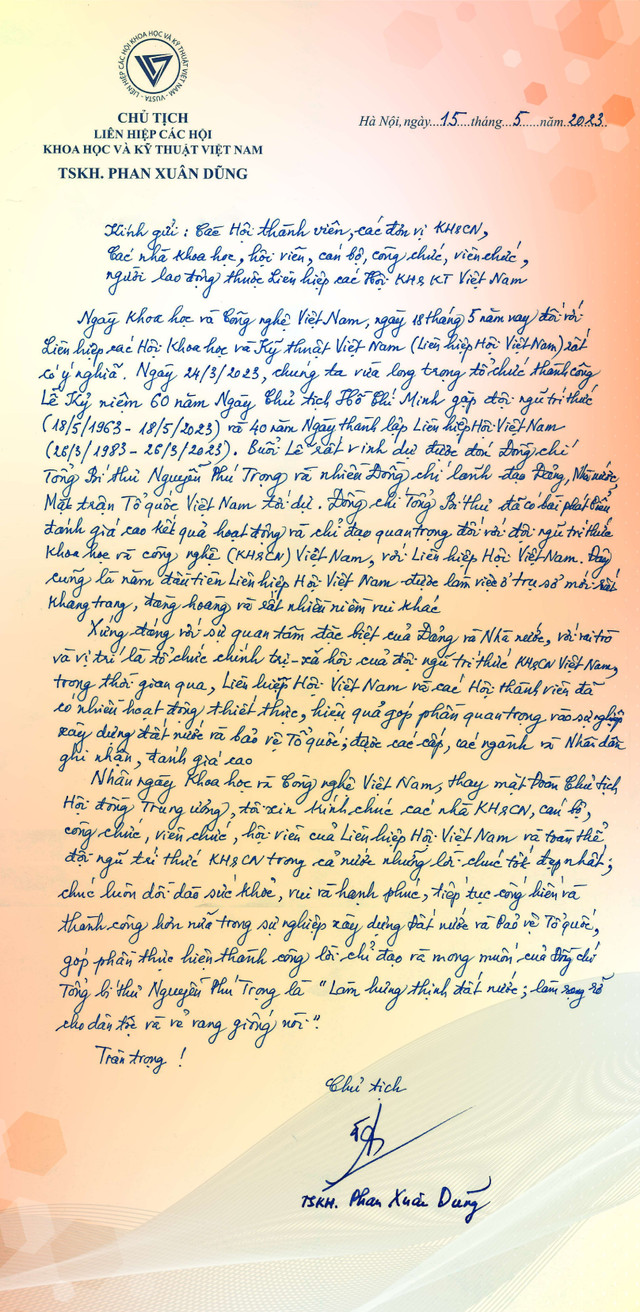 LIÊN HIỆP CÁC HỘI KHOA HỌC VÀ KỸ THUẬT VIỆT NAM - VUSTA
CHỦ TỊCH
LIÊN HIỆP CÁC HỘI
KHOA HỌC VÀ KỸ THUẬT VIỆT NAM
TSKH. PHAN XUÂN DŨNG
Hà Nội, ngày...15...tháng...5...năm 2023
Kính gửi: Các Hội thành viên, các đơn vị KH&CN,
Các nhà khoa học, hội viên, cán bộ, công chức, viên chức,
người lao động thuộc Liên hiệp các Hội KH&KT Việt Nam
Ngày Khoa học và Công nghệ Việt Nam, ngày 18 tháng 5 năm nay đối với
Liên hiệp các Hội Khoa học và Kỹ thuật Việt Nam (Liên hiệp Hội Việt Nam) rất
có ý nghĩa. Ngày 24/3/2023, chúng ta vừa long trọng tổ chức thành công
Lễ Kỷ niệm 60 năm Ngày Chủ tịch Hồ Chí Minh gặp đội ngũ trí thức
(18/5/1963 - 18/5/2023) và 40 năm Ngày thành lập Liên hiệp Hội Việt Nam
(26/3/1983 - 26/3/2023). Buổi Lễ rất vinh dự được đón Đồng chí
Tổng Bí thư Nguyễn Phú Trọng và nhiều Đồng chí lãnh đạo Đảng, Nhà nước,
Mặt trận Tổ quốc Việt Nam tới dự. Đồng chí Tổng Bí thư đã có bài phát biểu,
đánh giá cao kết quả hoạt động và chỉ đạo quan trọng đối với đội ngũ trí thức
khoa học và công nghệ (KH&CN) Việt Nam, với Liên hiệp Hội Việt Nam. Đây
cũng là năm đầu tiên Liên hiệp Hội Việt Nam được làm việc ở trụ sở mới rất
khang trang, đàng hoàng và rất nhiều niềm vui khác
Xứng đáng với sự quan tâm đặc biệt của Đảng và Nhà nước, với vai trò
và vị trí là tổ chức chính trị - xã hội của đội ngũ trí thức KH&CN Việt Nam,
trong thời gian qua, Liên hiệp Hội Việt Nam và các Hội thành viên đã
có nhiều hoạt động thiết thực, hiệu quả góp phần quan trọng vào sự nghiệp
xây dựng đất nước và bảo vệ Tổ quốc; được các cấp, các ngành và Nhân dân
ghi nhận, đánh giá cao
Nhân ngày Khoa học và Công nghệ Việt Nam, thay mặt Đoàn Chủ tịch
Hội đồng Trung ương, tôi xin kính chúc các nhà KH&CN, cán bộ,
công chức, viên chức, hội viên của Liên hiệp Hội Việt Nam và toàn thể
đội ngũ trí thức KH&CN trong cả nước những lời chúc tốt đẹp nhất;
chúc luôn dồi dào sức khoẻ, vui và hạnh phúc, tiếp tục cống hiến và
thành công hơn nữa trong sự nghiệp xây dựng Đất nước và Bảo vệ Tổ quốc,
góp phần thực hiện thành công lời chỉ đạo và mong muốn của Đồng chí
Tổng bí thư Nguyễn Phú Trọng là "Làm hưng thịnh đất nước; làm rạng rỡ
cho dân tộc và vẻ vang giống nòi".
Trân trọng !
Chủ tịch
TSKH. Phan Xuân Dũng